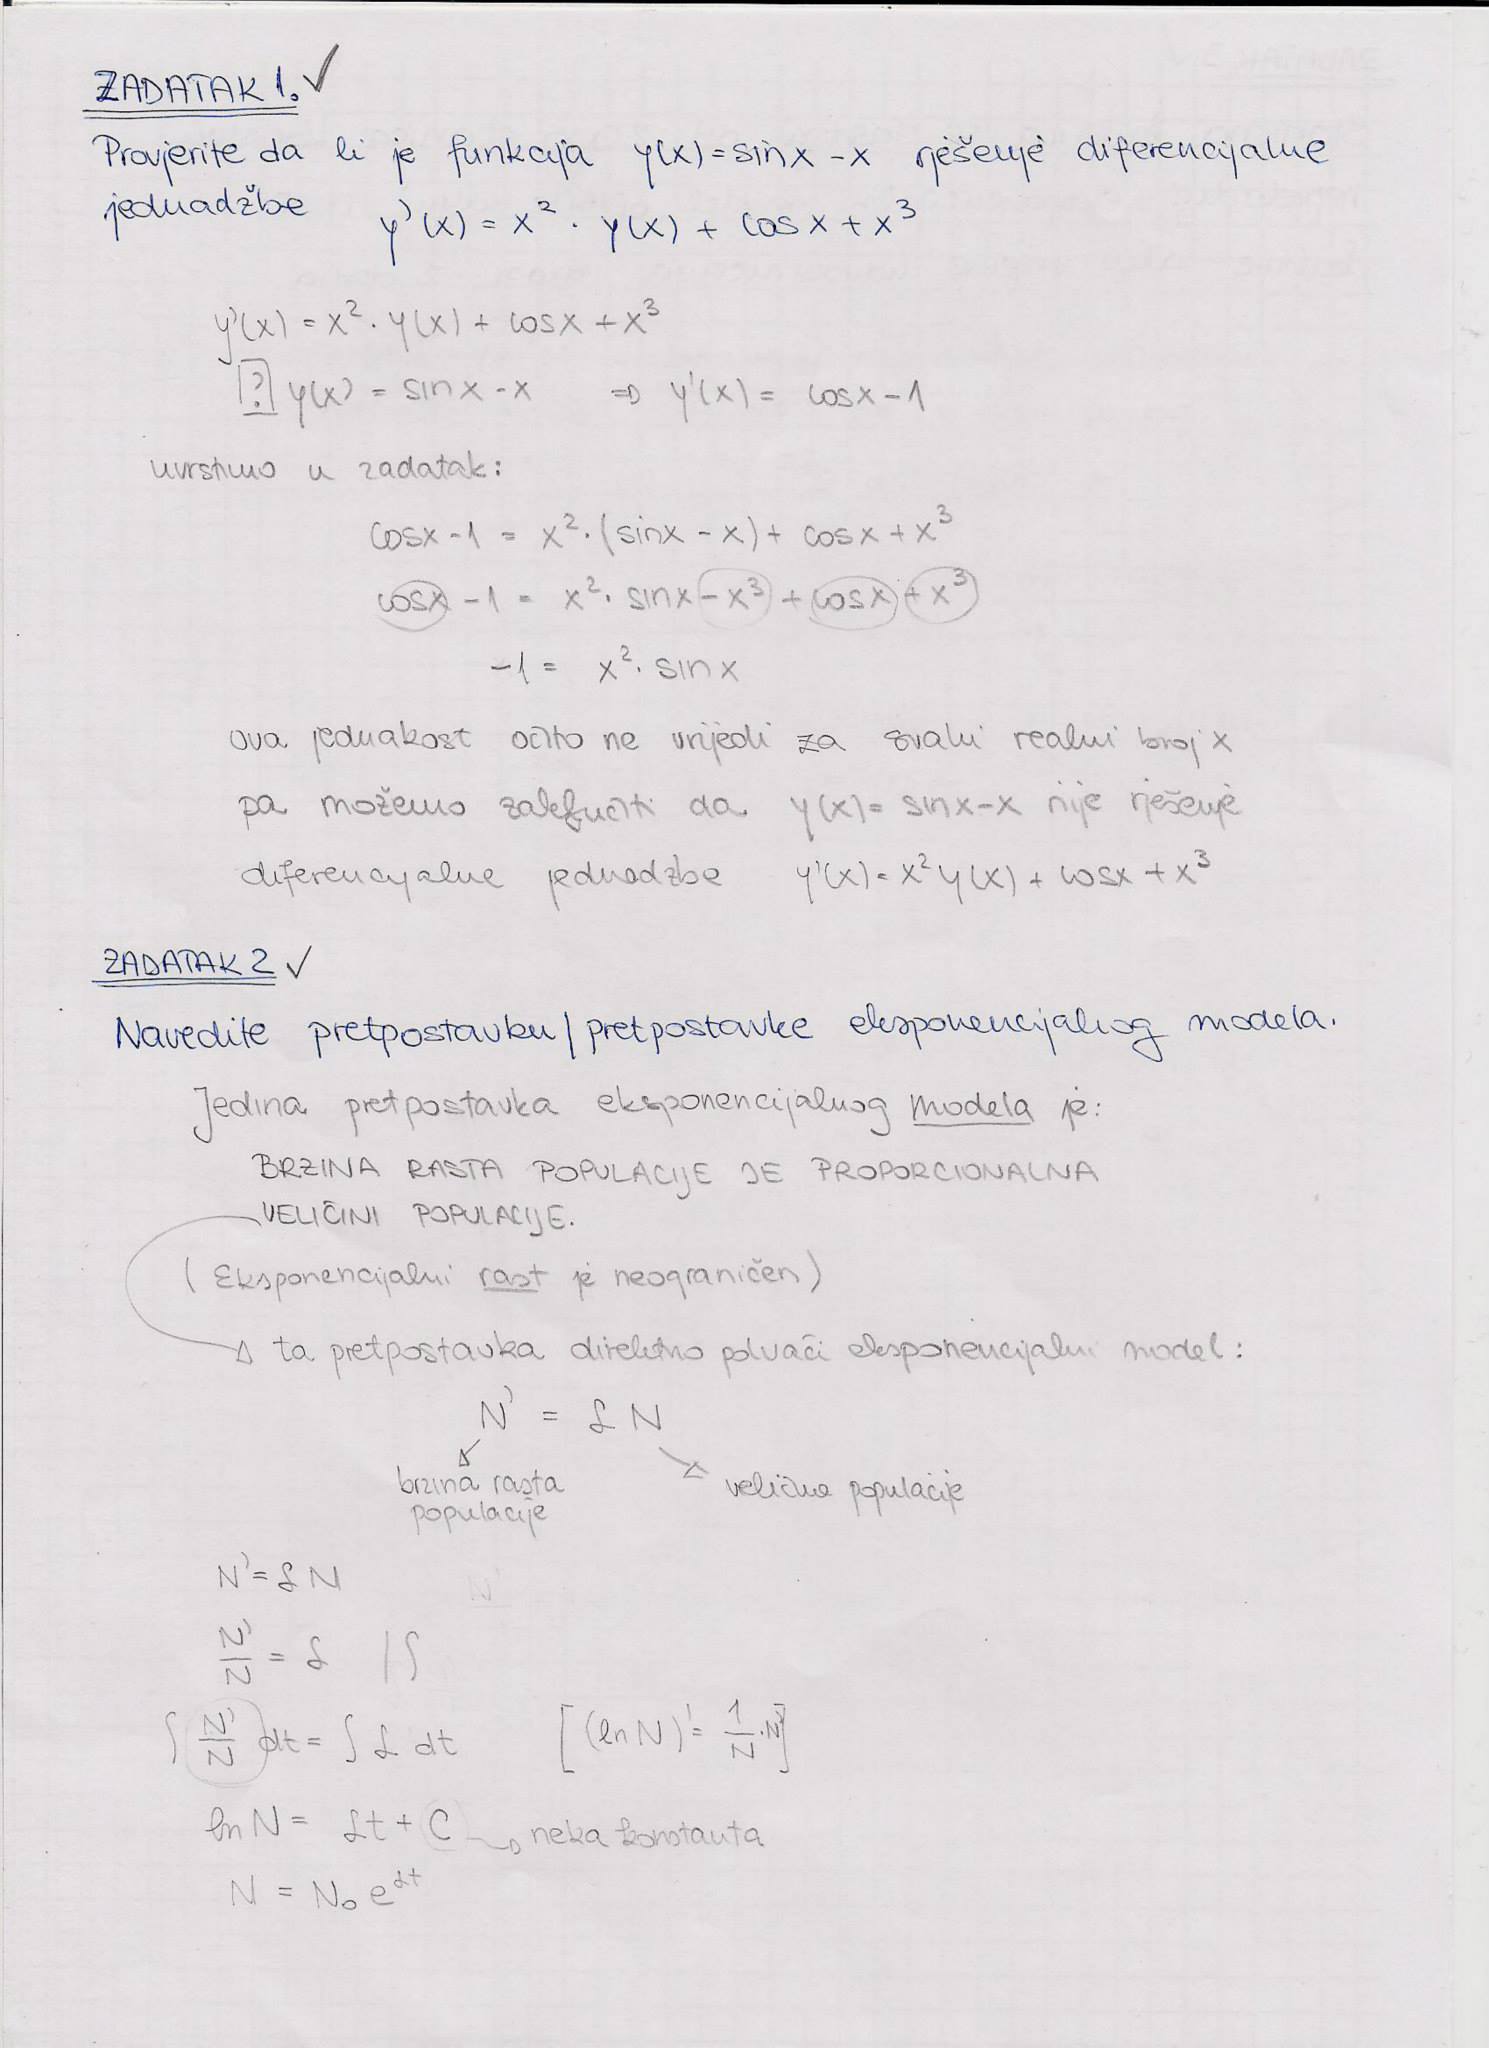 ZADATAK 1. ✓
Provjerite da li je funkcija y(x) = sin x - x rješenje diferencijalne
jednadžbe y'(x) = x² · y(x) + cos x + x³
y'(x) = x² · y(x) + cos x + x³
? y(x) = sin x - x ⇒ y'(x) = cos x - 1
uvrstimo u zadatak:
cos x - 1 = x² · (sin x - x) + cos x + x³
cos x - 1 = x² · sin x - x³ + cos x + x³
-1 = x² · sin x
ova jednakost očito ne vrijedi za svaki realni broj x
pa možemo zaključiti da y(x) = sin x - x nije rješenje
diferencijalne jednadžbe y'(x) = x² y(x) + cos x + x³
ZADATAK 2 ✓
Navedite pretpostavku / pretpostavke eksponencijalnog modela.
Jedina pretpostavka eksponencijalnog modela je:
BRZINA RASTA POPULACIJE JE PROPORCIONALNA
VELIČINI POPULACIJE.
(Eksponencijalni rast je neograničen)
→ ta pretpostavka direktno povlači eksponencijalni model:
N' = α N
brzina rasta
populacije
veličina populacije
N' = α N
N'/N = α /∫
∫ N'/N dt = ∫ α dt [(ln N)' = 1/N · N']
ln N = αt + C → neka konstanta
N = N₀ e^αt